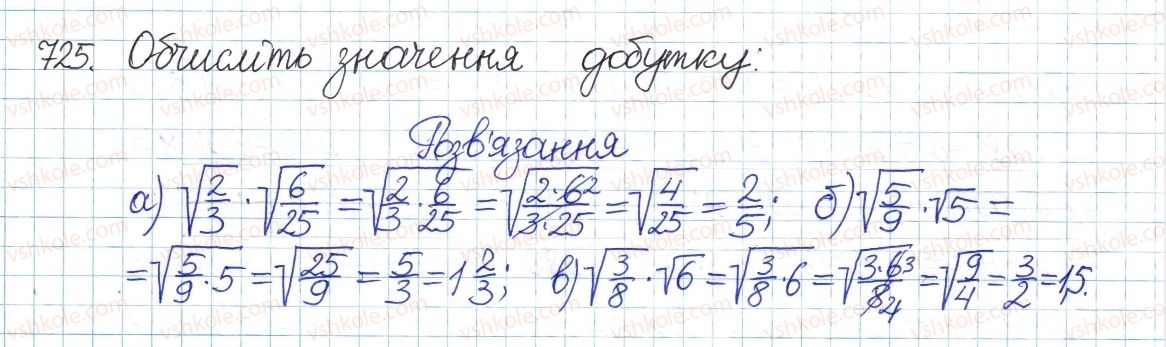 725. Обчисліть значення добутку:
Розв'язання
а) √(2/3) · √(6/25) = √(2/3 · 6/25) = √((2·6²)/(3·25)) = √(4/25) = 2/5; б) √(5/9) · √5 =
= √(5/9 · 5) = √(25/9) = 5/3 = 1 2/3; в) √(3/8) · √6 = √(3/8 · 6) = √((3·6³)/(8₄)) = √(9/4) = 3/2 = 1,5.